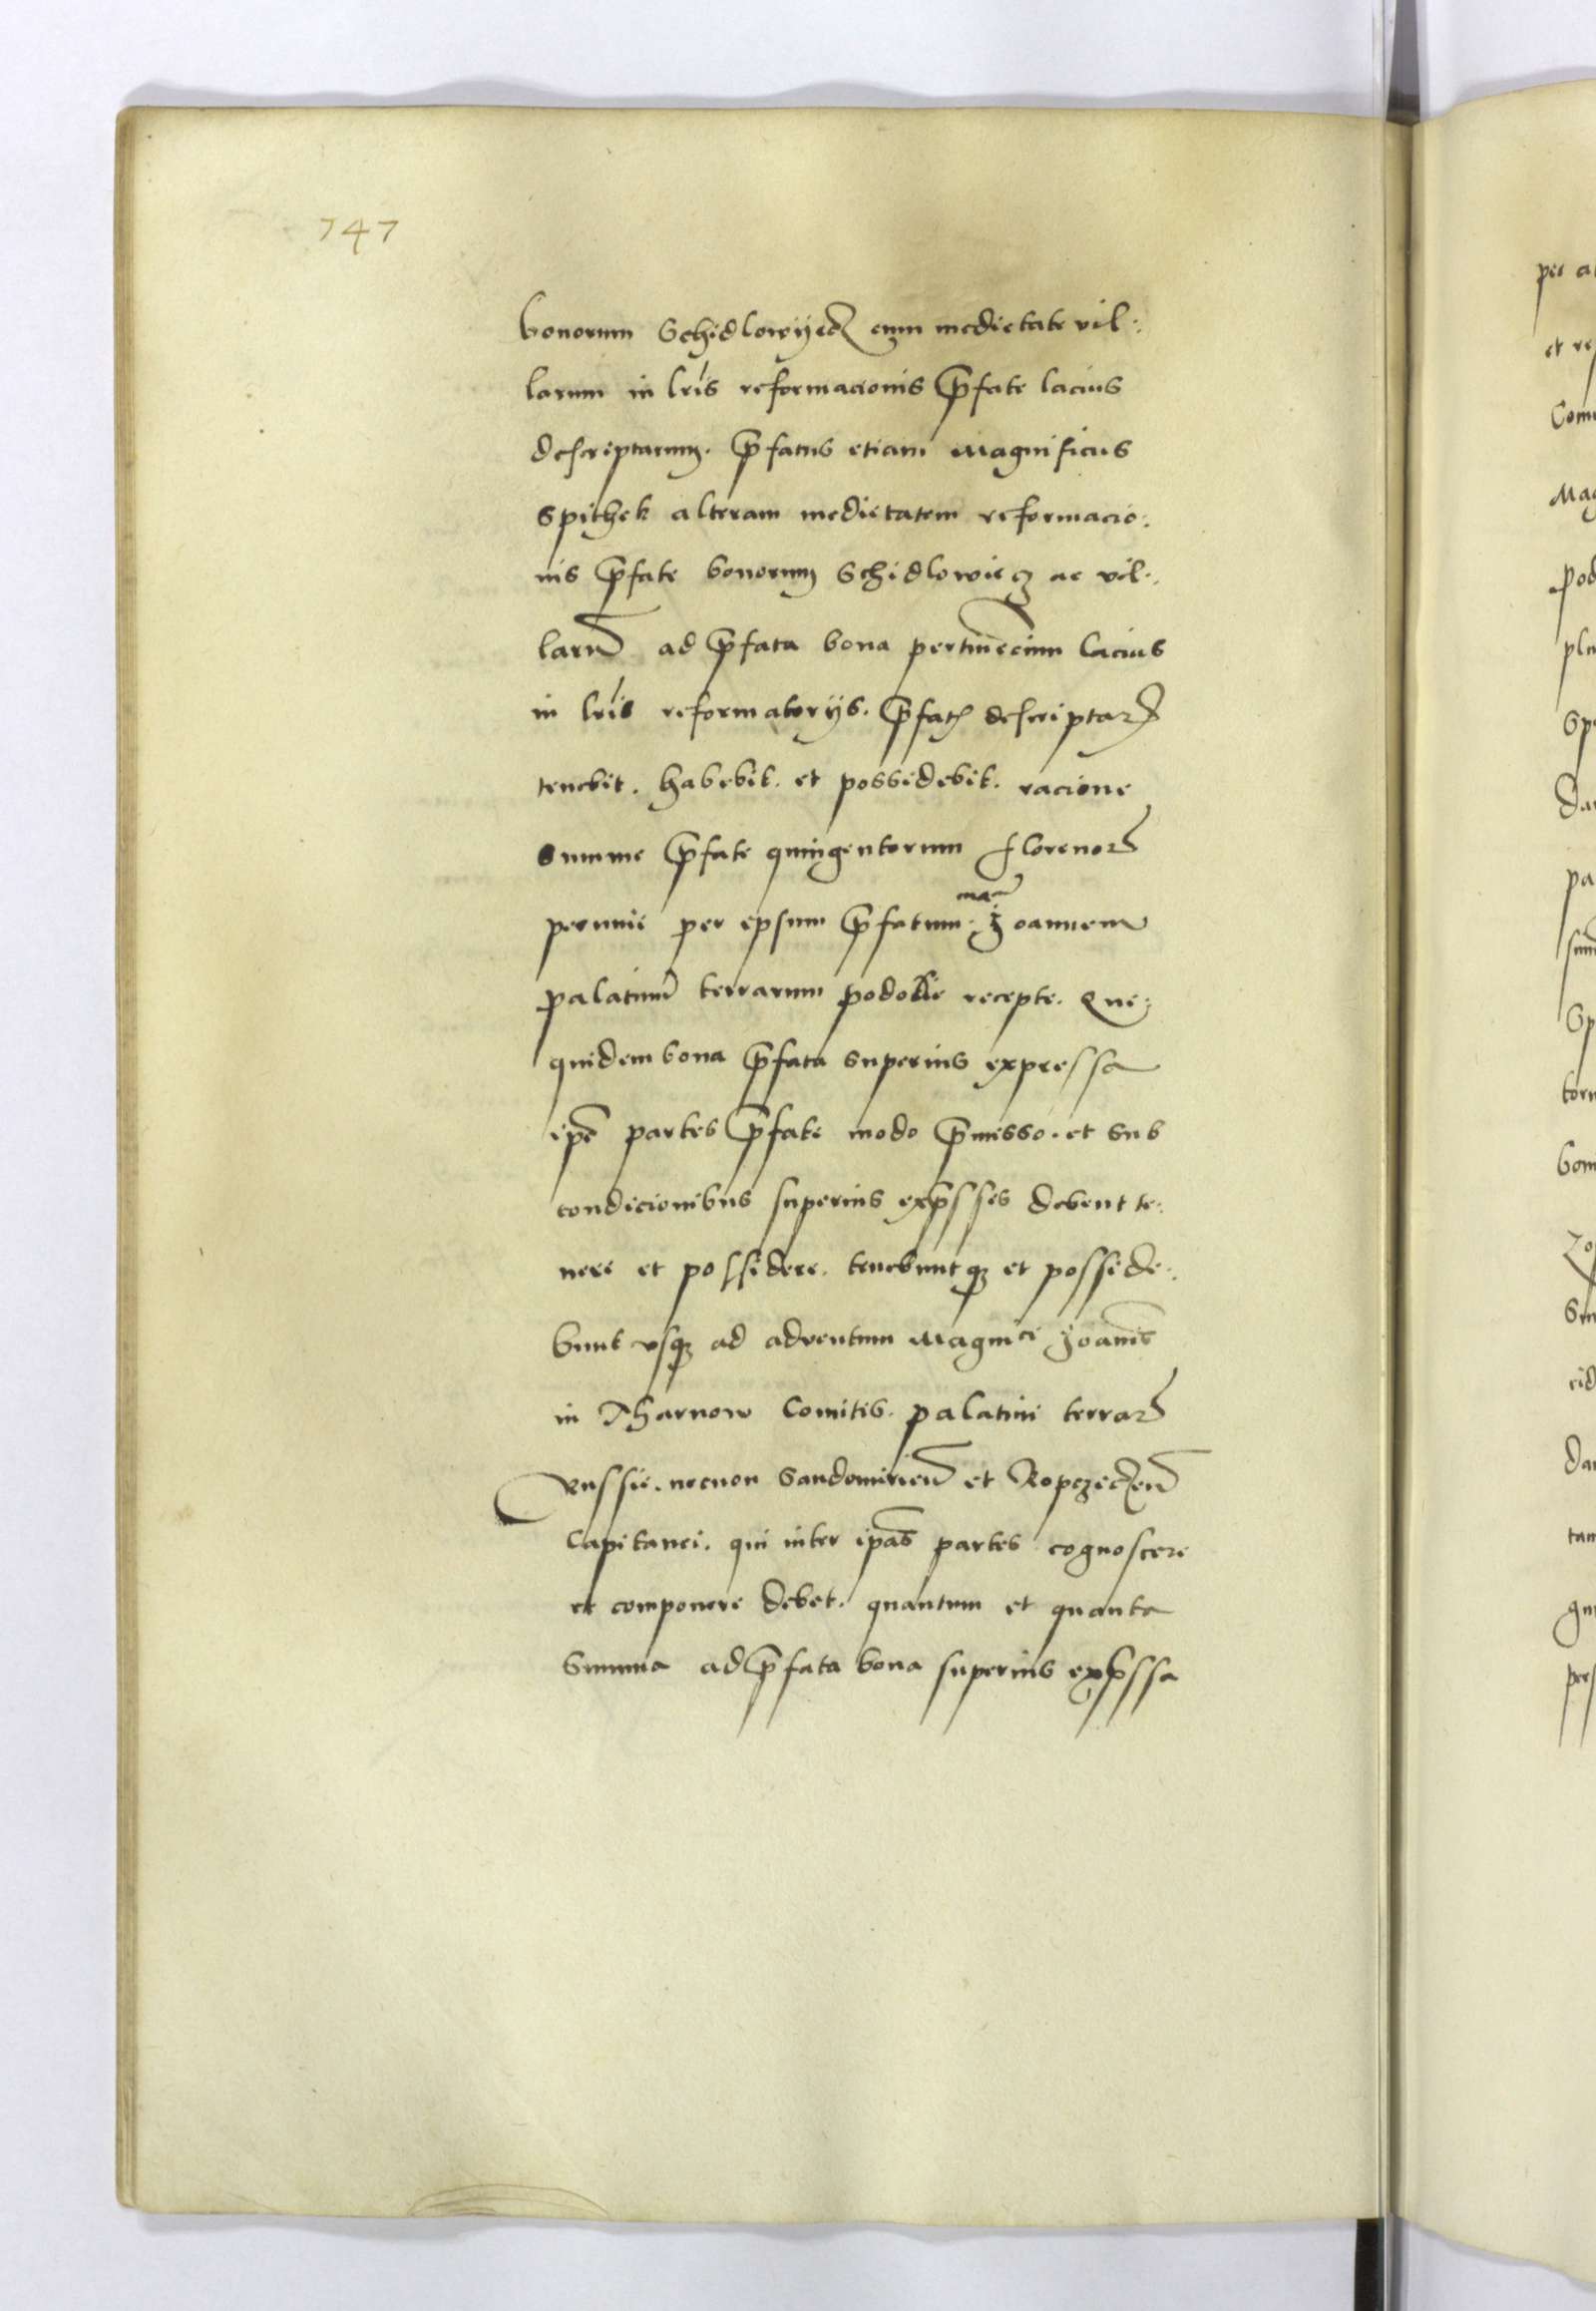 747
bonorum Schidlowyecz cum medietate vil:
larum in lris reformacionis p̄fate lacius
descriptarum. p̄fatus etiam Magnificus
Spithek alteram medietatem reformacio:
nis p̄fate bonorum Schidlowiecz ac vil:
larū ad p̄fata bona pertinēcium lacius
in lris reformatorys. p̄fatis descriptarꝝ
tenebit. habebit. et possidebit. racione
summe p̄fate quingentorum florenorꝝ
pecunie per epsum p̄fatum. Joannem
palatinū terrarum podolie recepte. Que:
quidem bona p̄fata superius expressa
ipē partes p̄fate modo p̄misso. et sub
condicionibus superius exp̄ssis debent te:
nere et possidere. tenebuntqꝫ et posside:
bunt vsqꝫ ad adventum Magnici Joanīs
in Tharnow Comitis. palatini terrarꝝ
Russie. necnon Sandomirien̄ et Ropczicien̄
Capitanei. qui inter ipās partes cognoscere
et componere debet. quantum et quanta
Summa ad p̄fata bona superius exp̄ssa
per a
et re
Com
Mag
pod
Sp
pa
Sp